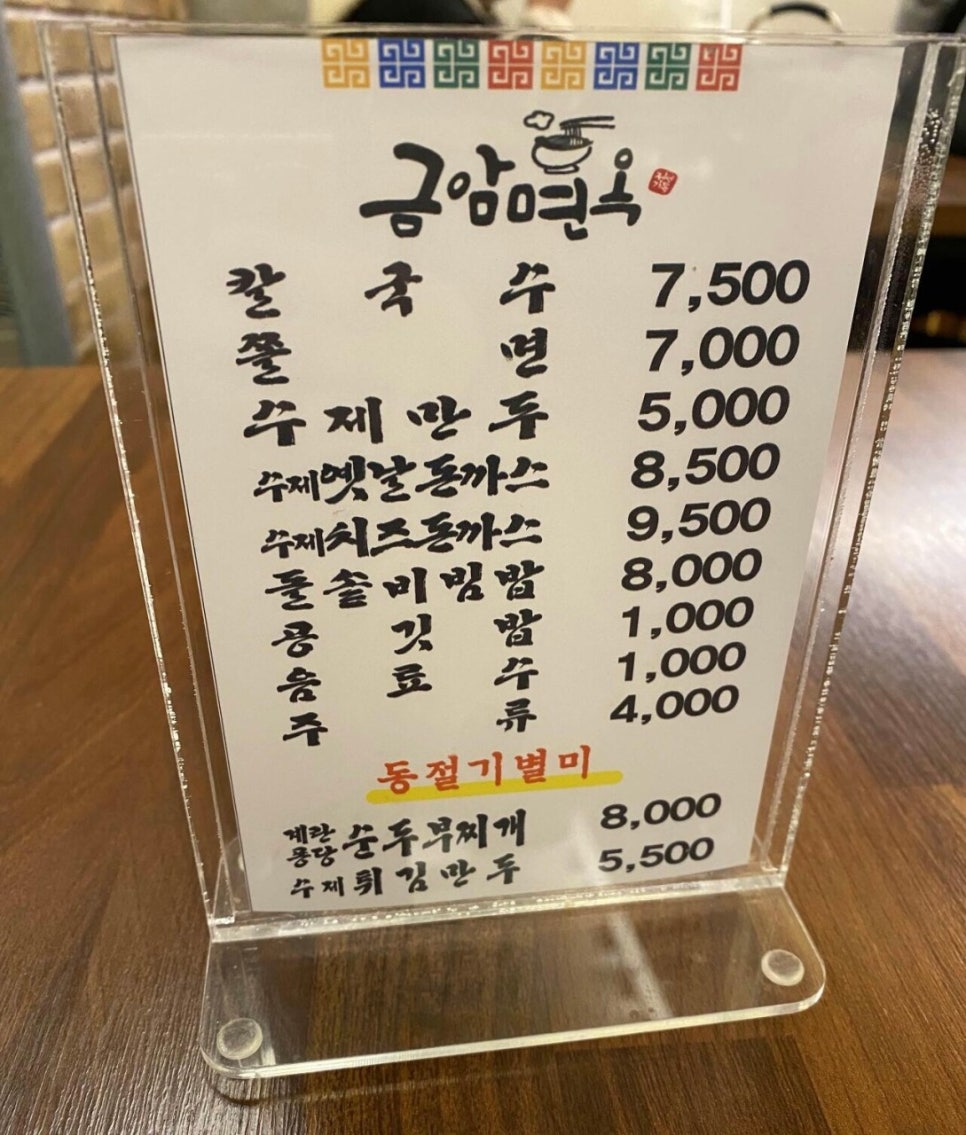 금암면옥
칼국수 7,500
쫄면 7,000
수제만두 5,000
수제옛날돈까스 8,500
수제치즈돈까스 9,500
돌솥비빔밥 8,000
공깃밥 1,000
음료수 1,000
주류 4,000
동절기별미
계란퐁당 순두부찌개 8,000
수제튀김만두 5,500